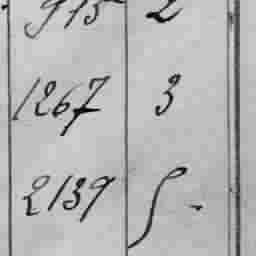 915 2
1267 3
2139 5-